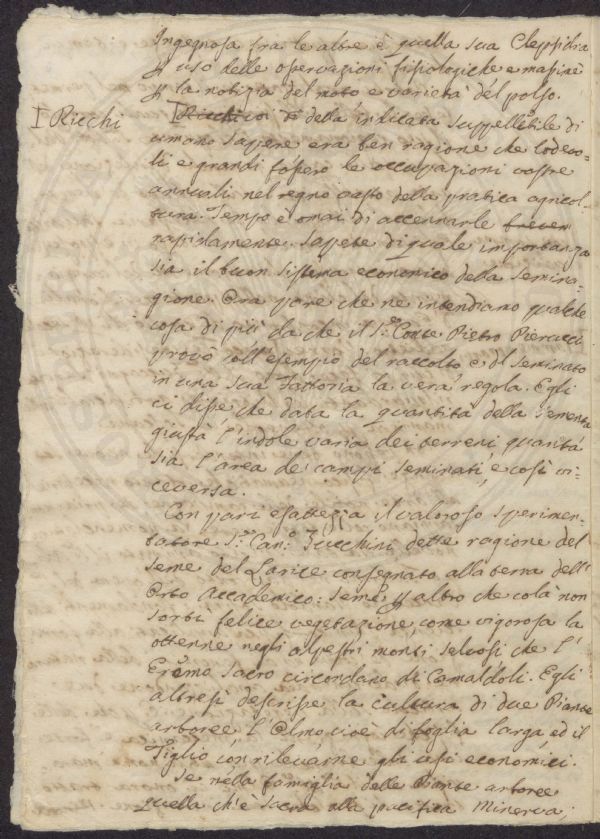 Ingegnosa fra le altre è quella sua Clepsidra
p uso delle osservazioni fisiologiche e massime
p la notizia del moto e varietà del polso.
I Ricchi
I Ricchi voi della indicata suppellettile di
umano sapere era ben ragione che lodevo-
li e grandi fossero le occupazioni vostre
annuali nel regno vasto della pratica agricol-
tura. Tempo è omai di accennarle breven
rapidamente. Sapete di quale importanza
sia il buon sistema economico della semina-
gione. Ora pare che ne intendiamo qualche
cosa di più da che il S.r Conte Pietro Pierucci
provò coll'esempio del raccolto e del seminato
in una sua Fattoria la vera regola. Egli
ci disse che data la quantità della sementa
giusta l'indole varia dei terreni quanta
sia l'area de campi seminati, e così vi-
ceversa.
Con pari esattezza il valoroso sperimen-
tatore S.r Can.o Zucchini dette ragione del
seme del Larice consegnato alla terra dell'
Orto Accademico: seme p altro che colà non
sortì felice vegetazione, come vigorosa la
ottenne negli alpestri monti selvosi che l'
Eremo sacro circondano di Camaldoli. Egli
altresì descrisse la cultura di due Piante
arboree l'Olmo cioè di foglia larga ed il
Tiglio con rilevarne gli usi economici.
Se nella famiglia delle Piante arboree
quella ch'è sacra alla pacifica Minerva;